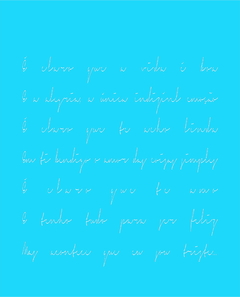 É claro que a vida é boa
E a alegria, a única indizível emoção
É claro que te acho linda
Em ti bendigo o amor das coisas simples
É claro que te amo
E tenho tudo para ser feliz
Mas acontece que eu sou triste...